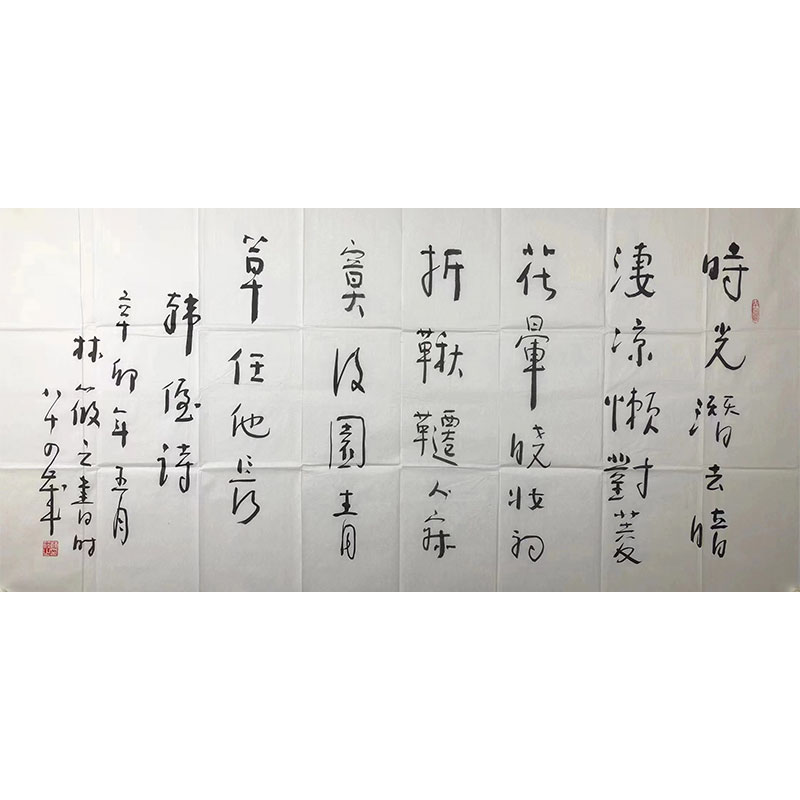 時光潛去暗
淒凉懶對菱
花暈曉妝初
折鞦韆人寂
寞後園青
草任他長
韓偓詩
辛卯年五月
林筱之書時
八十四歲